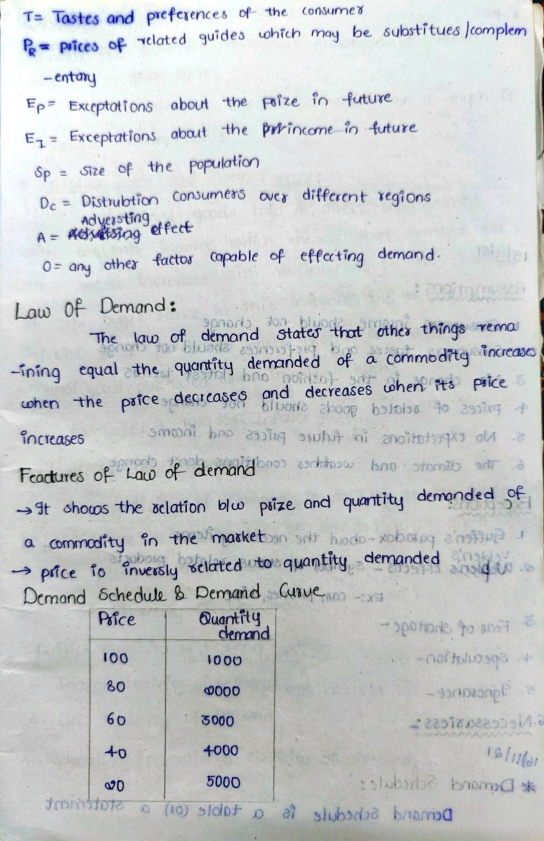 T= Tastes and preferences of the consumer
PR= prices of related guides which may be substitues/complem
-entary
EP= Exceptations about the prize in future
EI= Exceptations about the income in future
Sp = size of the population
Dc = Distrubtion consumers over different regions
Adversting
A = effect
O= any other factor capable of effecting demand.
Law Of Demand:
The law of demand states that other things rema
-ining equal the quantity demanded of a commodity increases
when the price decreases and decreases when its price
increases
Feactures of Law of demand
→ It shows the relation b/w prize and quantity demanded of
a commodity in the market
→ price is inversly related to quantity demanded
Demand Schedule & Demand Curve
Price Quantity demand
100 1000
80 2000
60 3000
40 4000
20 5000